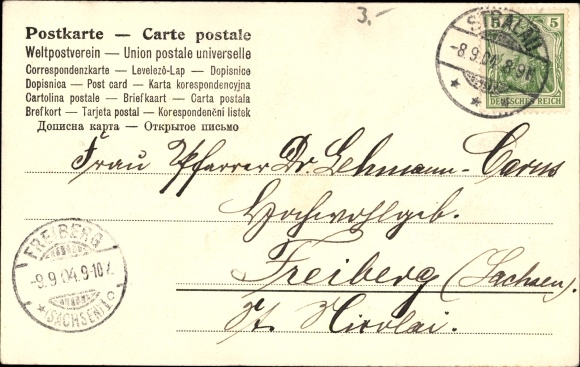 3.-
Postkarte — Carte postale
Weltpostverein — Union postale universelle
Correspondenzkarte — Levelezö-Lap — Dopisnice
Dopisnica — Post card — Karta korespondencyjna
Cartolina postale — Briefkaart — Carta postala
Brefkort — Tarjeta postal — Korespondenčni listek
Дописна карта — Открытое письмо
5 5
DEUTSCHES REICH
STRALAU
-8.9.04. 8-9N.
Frau Pfarrer Dr. Lehmann-Carus
Hochwohlgeb.
Freiberg (Sachsen.)
St. Nicolai.
FREIBERG
-9.9.04.9-10V.
(SACHSEN)1